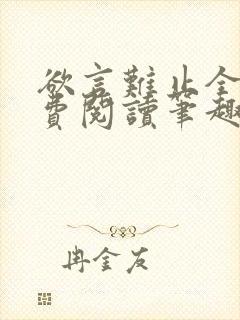 欲言難止全
費閱讀筆趣
冉金友